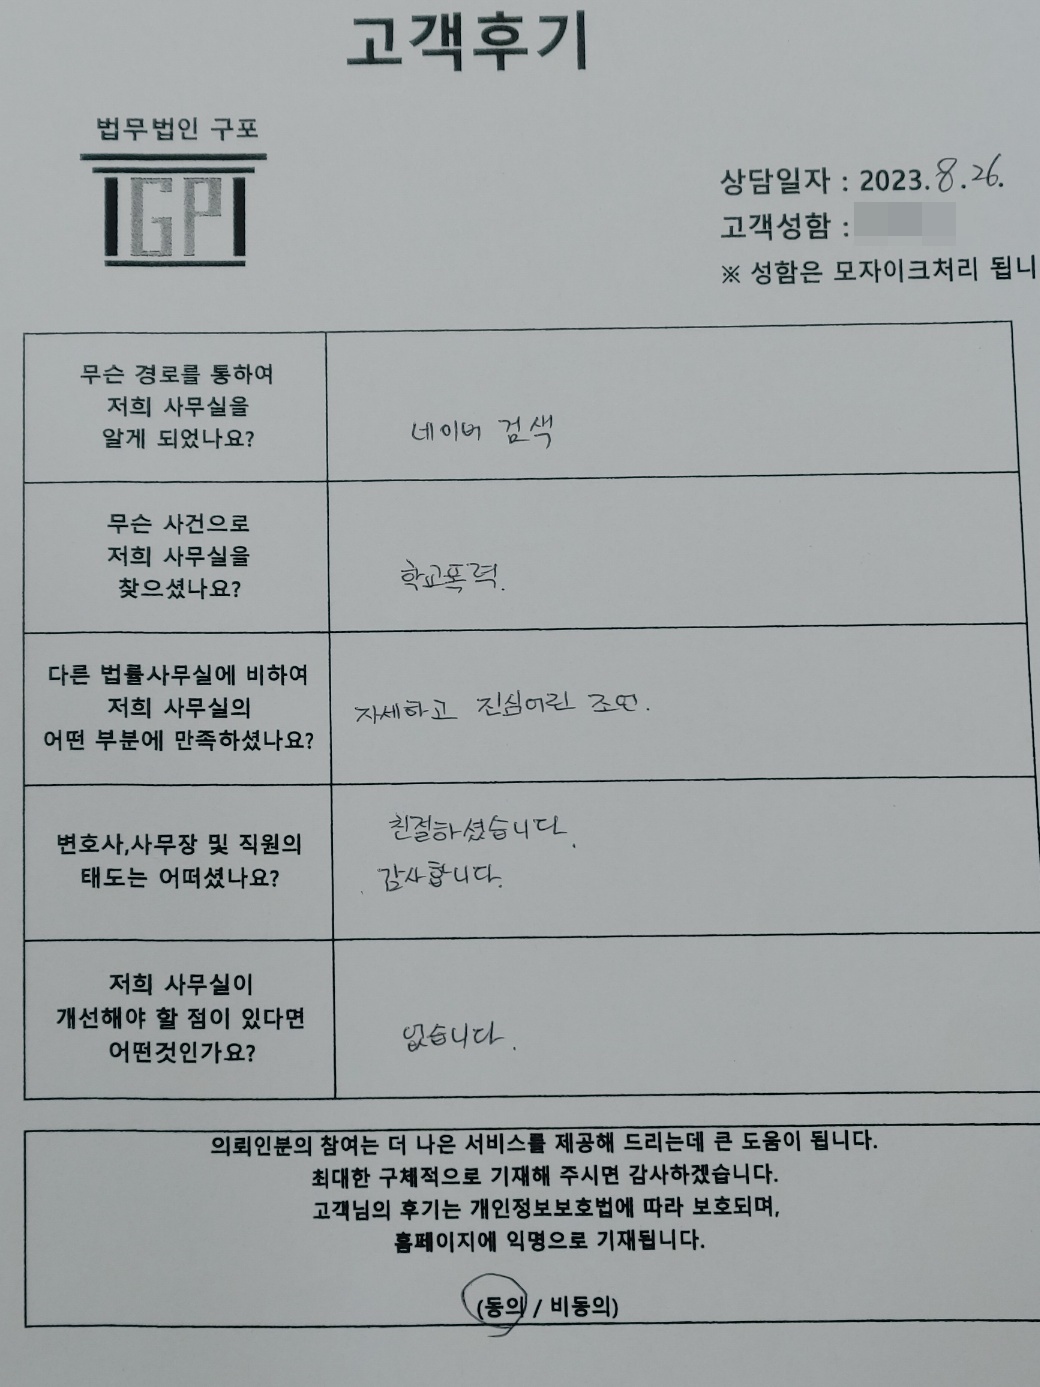 고객후기
법무법인 구포
GP
상담일자 : 2023.8.26.
고객성함 :
※ 성함은 모자이크처리 됩니
무슨 경로를 통하여
저희 사무실을
알게 되었나요?
네이버 검색
무슨 사건으로
저희 사무실을
찾으셨나요?
학교폭력.
다른 법률사무실에 비하여
저희 사무실의
어떤 부분에 만족하셨나요?
자세하고 진심어린 조언.
변호사,사무장 및 직원의
태도는 어떠셨나요?
친절하셨습니다.
감사합니다.
저희 사무실이
개선해야 할 점이 있다면
어떤것인가요?
없습니다.
의뢰인분의 참여는 더 나은 서비스를 제공해 드리는데 큰 도움이 됩니다.
최대한 구체적으로 기재해 주시면 감사하겠습니다.
고객님의 후기는 개인정보보호법에 따라 보호되며,
홈페이지에 익명으로 기재됩니다.
(동의 / 비동의)